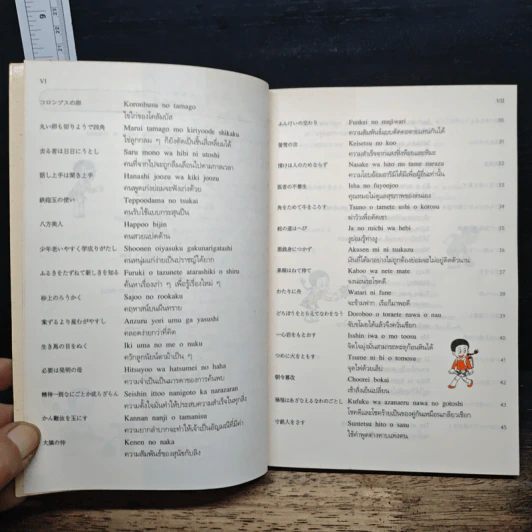 VI
コロンブスの卵 Koronbusu no tamago
ไข่ไก่ของโคลัมบัส
丸い卵も切りようで四角 Marui tamago mo kiriyoode shikaku
去る者は日日にうとし Saru mono wa hibi ni utoshi
คนที่จากไปจะถูกลืมเลือนไปตามกาลเวลา
話し上手は聞き上手 Hanashi joozu wa kiki joozu
คนพูดเก่งย่อมจะฟังเก่งด้วย
鉄砲玉の使い Teppoodama no tsukai
คนรับใช้แบบกระสุนปืน
八方美人 Happoo bijin
คนสวยแปดด้าน
少年老いやすく学成りがたし Shoonen oiyasuku gakunarigataishi
คนหนุ่มแก่ง่ายเป็นปราชญ์ได้ยาก
ふるきをたずねて新しきを知る Furuki o tazunete atarashiki o shiru
ค้นหาเรื่องเก่า ๆ เพื่อรู้เรื่องใหม่ ๆ
砂上のろうかく Sajoo no rookaku
คฤหาสน์บนผืนทราย
案ずるより産むがやすし Anzuru yori umu ga yasushi
คลอดง่ายกว่าที่คิด
生き馬の目をぬく Iki uma no me o nuku
ควักลูกนัยน์ตาม้าเป็น ๆ
必要は発明の母 Hitsuyoo wa hatsumei no haha
ความจำเป็นเป็นมารดาของการค้นพบ
精神一到なにごとか成らざらん Seishin ittoo nanigoto ka narazaran
ความตั้งใจมั่นทำให้ประสบความสำเร็จในทุกสิ่ง
かん難汝を玉にす Kannan nanji o tamanisu
ความยากลำบากจะทำให้เจ้าเป็นอัญมณีที่มีค่า
犬猿の仲 Kenen no naka
ความสัมพันธ์ของสุนัขกับลิง
VII
ふんけいの交わり Funkei no majiwari 30
ความสัมพันธ์แบบตัดคอตายแทนกันได้
蛍雪の功 Keisetsu no koo
ความสำเร็จจากแสงหิ่งห้อยและหิมะ
情けは人のためならず Nasake wa hito no tame narazu
医者の不養生 Isha no fuyoojoo
คุณหมอไม่ดูแลสุขภาพของตนเอง
角をためて牛をころす Tsuno o tamete ushi o korosu
ฆ่าวัวเพื่อดัดเขา
蛇の道はへび Ja no michi wa hebi
งูย่อมรู้ทางงู
悪銭身につかず Akusen mi ni tsukazu
果報はねて待て Kahoo wa nete mate
จงนอนรอโชคดี
わたりに舟 Watari ni fune
จะข้ามฟาก เรือก็มาพอดี
どろぼうをとらえてなわをなう Doroboo o toraete nawa o nau
จับขโมยได้แล้วจึงควั่นเชือก
一心岩をもとおす Isshin iwa o mo toosu
つめに火をともす Tsume ni hi o tomosu
จุดไฟด้วยเล็บ
朝令暮改 Chootei bokai
เช้าสั่งเย็นเปลี่ยน
禍福はあざなえるなわのごとし Kafuku wa azanaeru nawa no gotoshi
โชคดีและโชคร้ายเป็นของคู่กันเหมือนเกลียวเชือก
寸鉄人をさす Suntetsu hito o sasu 45
ใช้คำพูดต่างดาบแทงคน